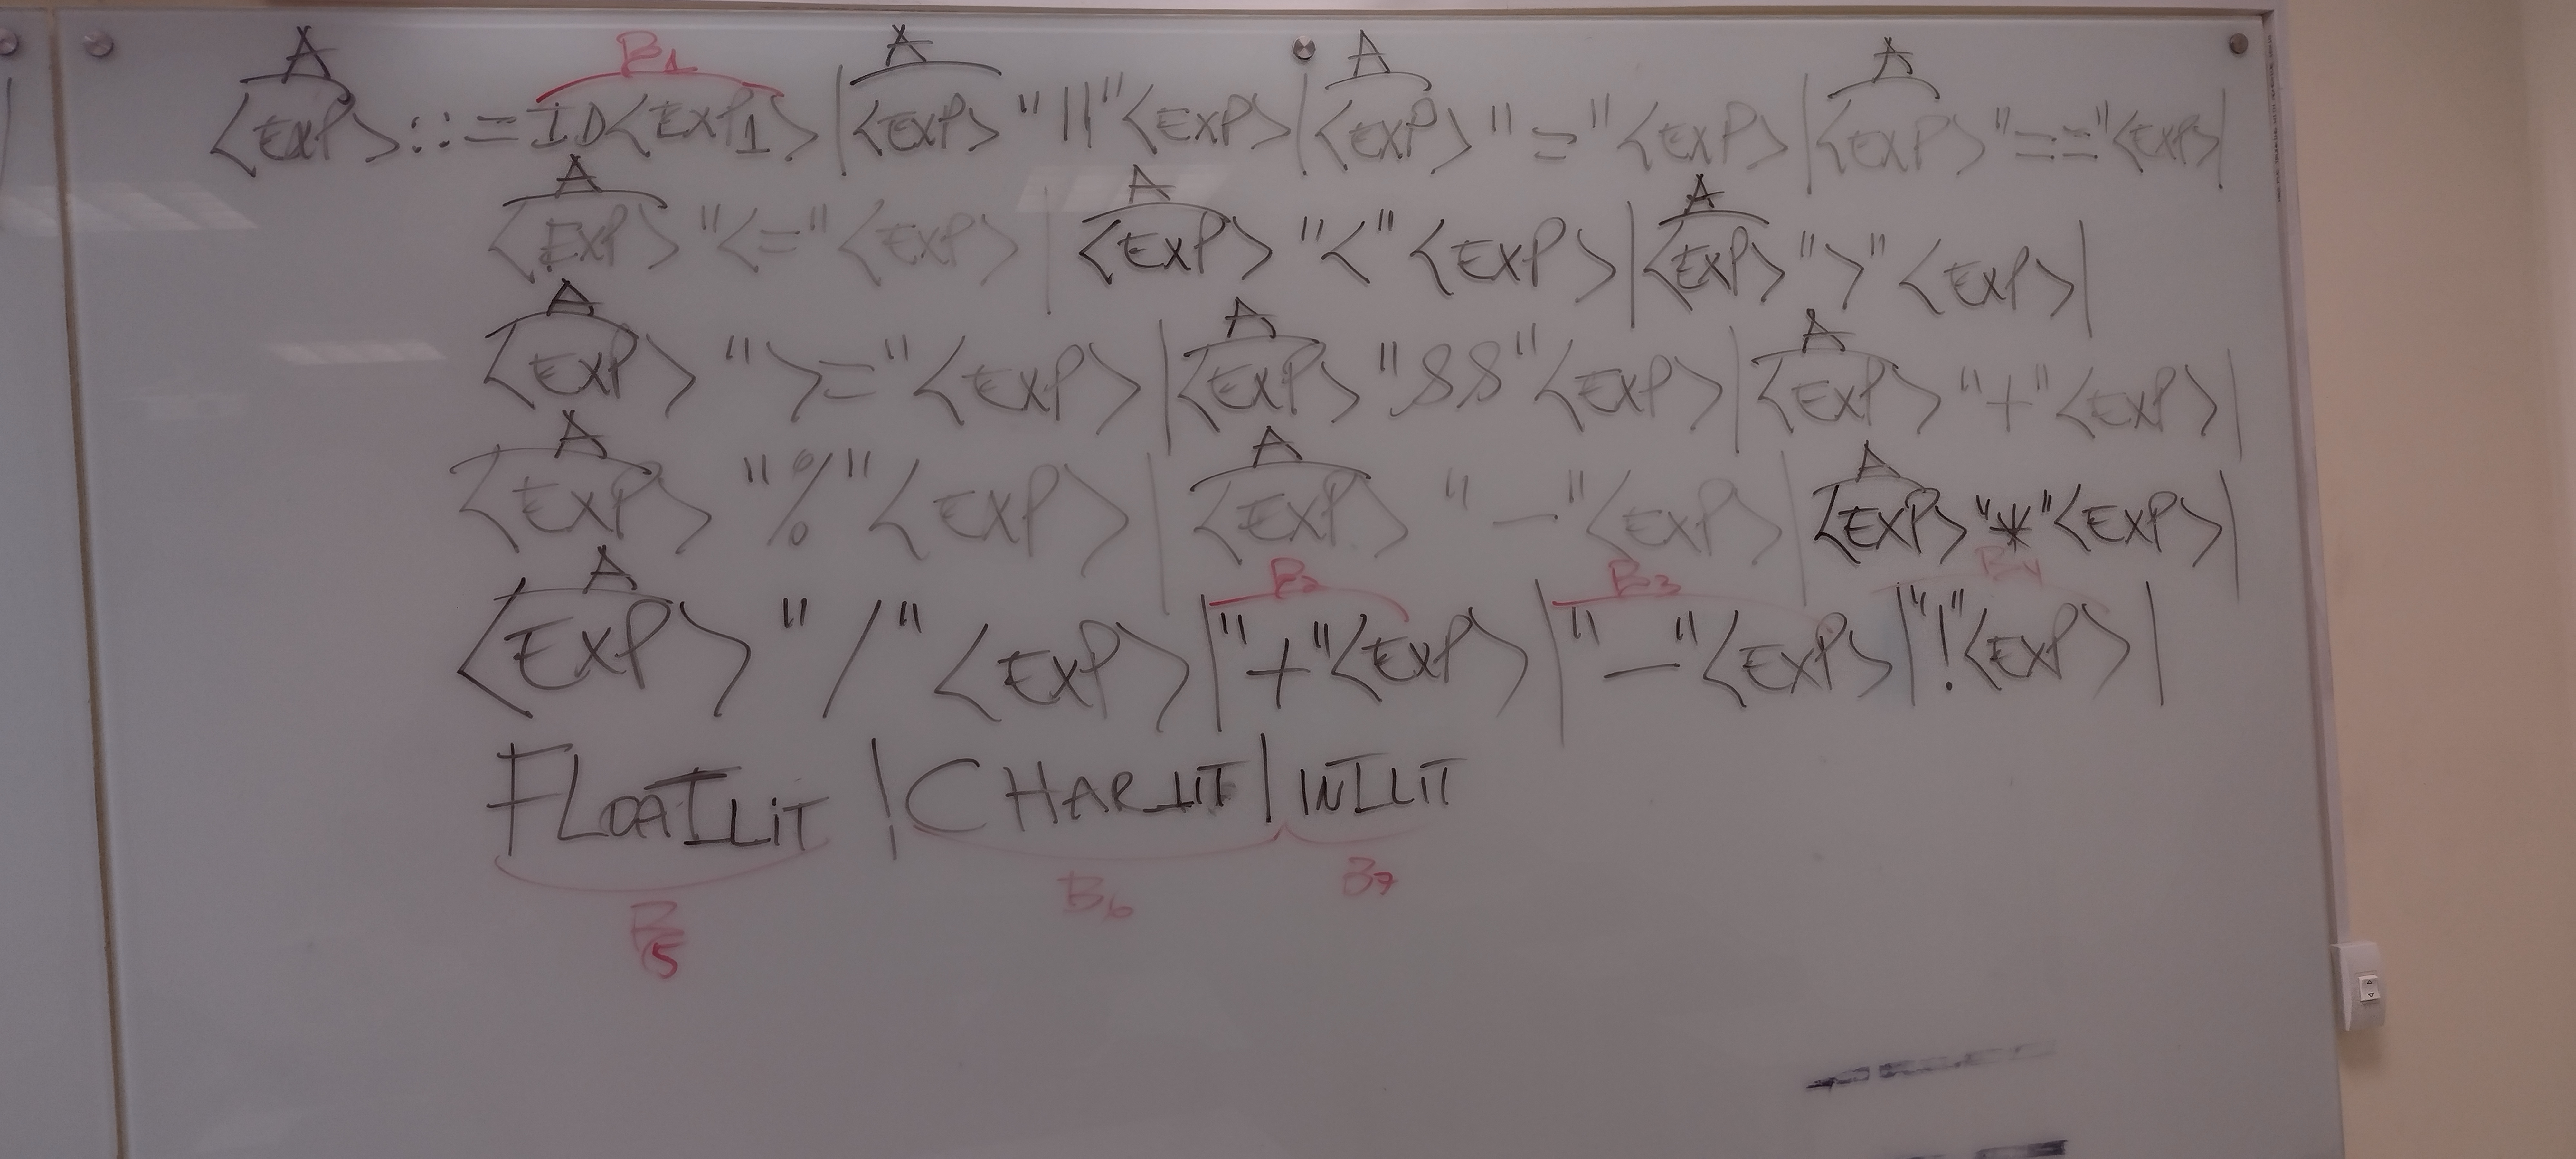 A B1 A A A
<EXP> ::= ID<EXP1> | <EXP> "||" <EXP> | <EXP> "=" <EXP> | <EXP> "==" <EXP> |
A A A
<EXP> "<=" <EXP> | <EXP> "<" <EXP> | <EXP> ">" <EXP> |
A A A
<EXP> ">=" <EXP> | <EXP> "&&" <EXP> | <EXP> "+" <EXP> |
A A A
<EXP> "%" <EXP> | <EXP> "-" <EXP> | <EXP> "*" <EXP> |
A B2 B3 B4
<EXP> "/" <EXP> | "+" <EXP> | "-" <EXP> | "!" <EXP> |
FLOATLIT | CHARLIT | INTLIT
B5 B6 B7